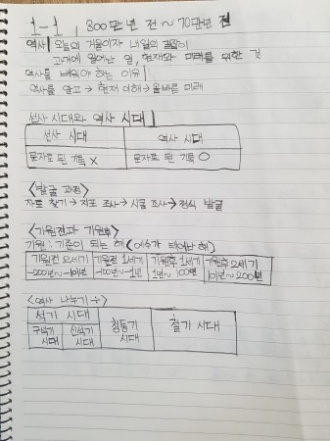 1-1, 300만년 전~70만년 전
역사 오늘의 거울이자 내일의
과거에 일어난 일, 현재와 미래를 위한 것
역사를 배워야 하는 이유
역사를 알고→현재 이해→올바른 미래
선사 시대와 역사 시대
선사 시대 역사 시대
문자로 된 기록 X 문자로 된 기록 O
<발굴 과정>
자료 찾기→지표 조사→시굴 조사→정식 발굴
<기원전과 기원후>
기원: 기준이 되는 해(예수가 태어난 해)
기원전 2세기 기원전 1세기 기원후 1세기 기원후 2세기
-200년~-101년 -100년~-1년 1년~100년 101년~200년
<역사 나누기÷>
석기 시대 청동기 시대 철기 시대
구석기 시대 신석기 시대